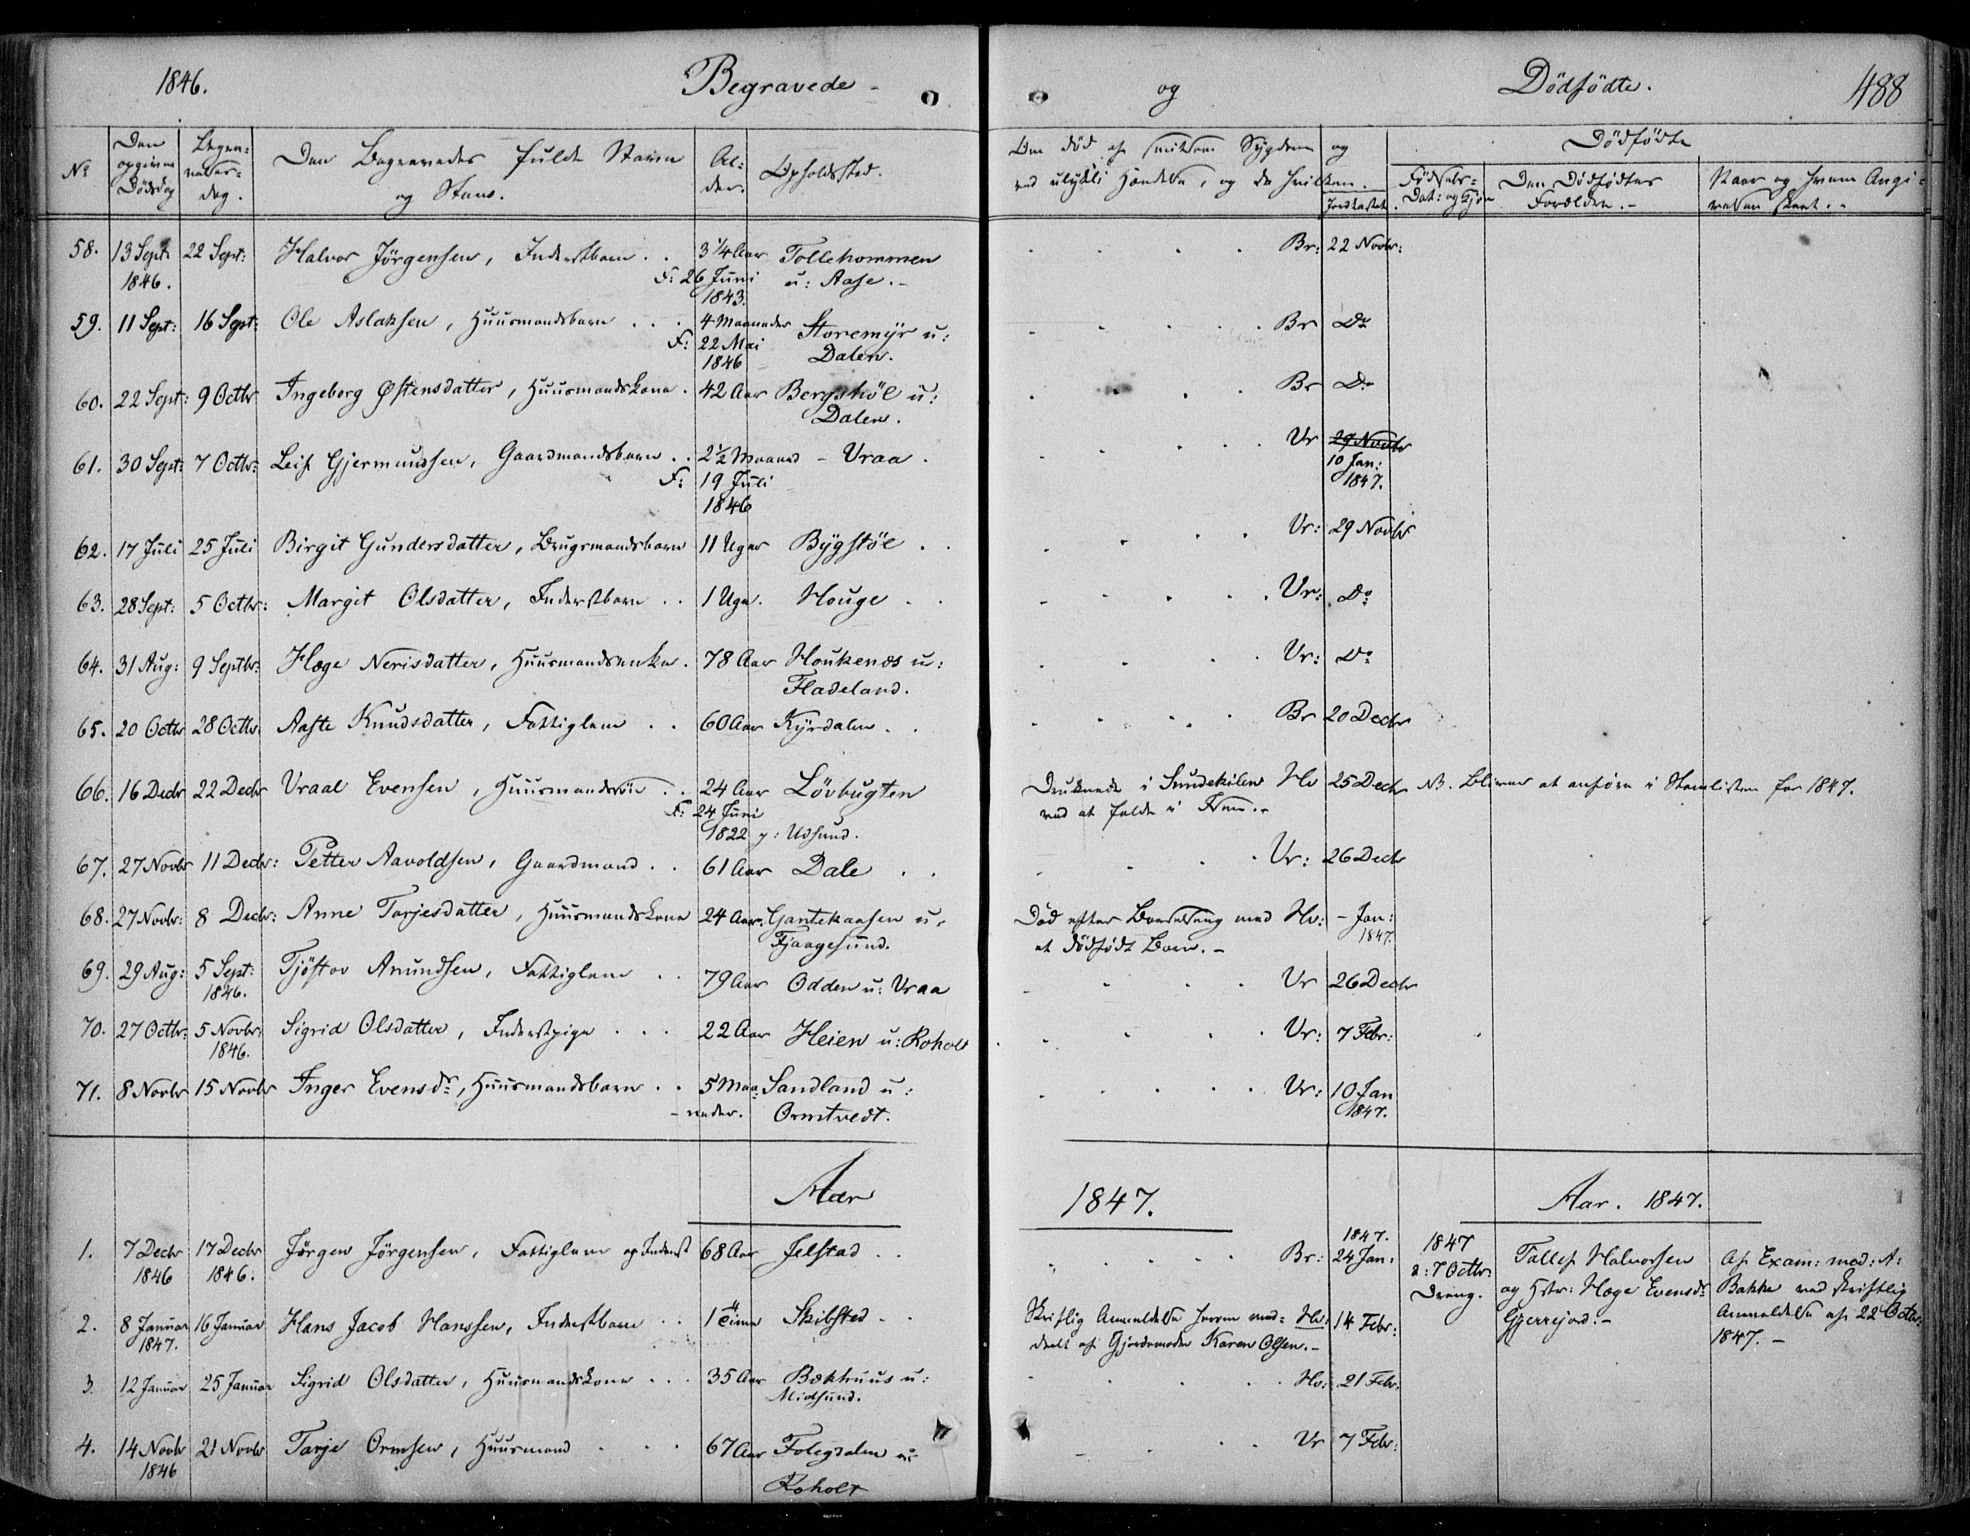 1846. Begravede og Dödfödte. 488
No Den opgivne Dödsdag Begravelsesdag. Den Begravedes fulde Navn og Stand. Alder. Opholdssted. Om död af smitsom Sygdom og ved ulykkelig Hændelse, og da hvilken. Indkastet. Dödfödte
Födsels- Dat: og Kjön Den Dödfödtes Forældre. Naar og hvem Angivelsen skeet.
58. 13 Sept: 22 Sept: Halvor Jörgensen, Inderstbarn . . 3 1/4 Aar Tollehommen Br: 22 Novbr:
1846. F: 26 Juni u: Aase.
1843.
59. 11 Sept: 16 Sept: Ole Aslaksen, Huusmandsbarn . . . 4 Maaneder Storemÿr u: Br Do
F: 22 Mai Dalen.
1846
60. 22 Sept: 9 Octbr Ingeborg Østensdatter, Huusmandskone . 42 Aar Bergstöl u: Br Do
Dalen.
61. 30 Sept: 7 Octbr: Leif Gjermundsen, Gaardmandsbarn . . 2 1/2 Maaned - Vraa . Vr 29 Novbr
F: 19 Juli 10 Jan:
1846 1847.
62. 17 Juli 25 Juli Birgit Gundersdatter, Brugsmandsbarn 11 Uger Bÿgstöl . . Vr: 29 Novbr
63. 28 Sept: 5 Octbr: Margit Olsdatter, Inderstbarn . . 1 Uge. Houge . . Vr: Do
64. 31 Aug: 9 Septbr: Hæge Nerisdatter, Huusmandsenke . 78 Aar Houkenæs u: Vr: Do
Fladeland.
65. 20 Octbr 28 Octbr. Aaste Knudsdatter, Fattiglem . . 60 Aar Kÿrdalen . . Br 20 Decbr
66. 16 Decbr 22 Decbr Vraal Evensen, Huusmandssön . . 24 Aar Lövbugten Druknede i Sundekilen Hv 25 Decbr NB. Bliver at anföre i Navnelisten for 1847.
F: 24 Juni ved at falde i
1822 p: Udsund.
67. 27 Novbr 11 Decbr: Petter Aavoldsen, Gaardmand . . 61 Aar Dale . . Vr: 26 Decbr
68. 27 Novbr: 8 Decbr: Anne Tarjesdatter, Huusmandskone 24 Aar. Gantekaasen u: Död efter Barselseng med Hv: - Jan:
Fjaagesund. et dödfödt Barn. - 1847.
69. 29 Aug: 5 Sept: Tjöstov Anundsen, Fattiglem . . 79 Aar Odden u: Vraa Vr 26 Decbr
1846.
70. 27 Octbr: 5 Novbr: Sigrid Olsdatter, Inderstpige . . . 22 Aar Heien u: Roholt Vr: 7 Febr:
1846.
71. 8 Novbr 15 Novbr Inger Evensdr, Huusmandsbarn . . 5 Maa- Sandland u: Vr: 10 Jan
neder. Ormtvedt. 1847.
Aar 1847. Aar. 1847.
1. 7 Decbr 17 Decbr Jörgen Jörgensen, Fattiglem og Inderst 68 Aar Jelstad . . Br: 1847. 24 Jan: 1847 Tallef Halvorsen Af Exam: med: A:
1846 1846. d: 7 Octbr: og Hstr: Hæge Evensdr Bakka ved skriftlig
Dreng. Gjerrejord. - Anmeldelse af 22 Octbr.
2. 8 Januar 16 Januar Hans Jacob Hanssen, Inderstbarn . . 1 Time Skibsted . . Skriftlig Anmeldelse herom med- Hv: 14 Febr: 1847. -
1847. deelt af Gjordemoder Karen Olsen. -
3. 12 Januar 25 Januar Sigrid Olsdatter, Huusmandskone . . . 35 Aar Bækhuus u: Hv: 21 Febr:
Midsund.
4. 14 Novbr 21 Novbr Tarje Ormsen, Huusmand . . . 67 Aar Folegdalen u: Vr 7 Febr:
1846 Roholt